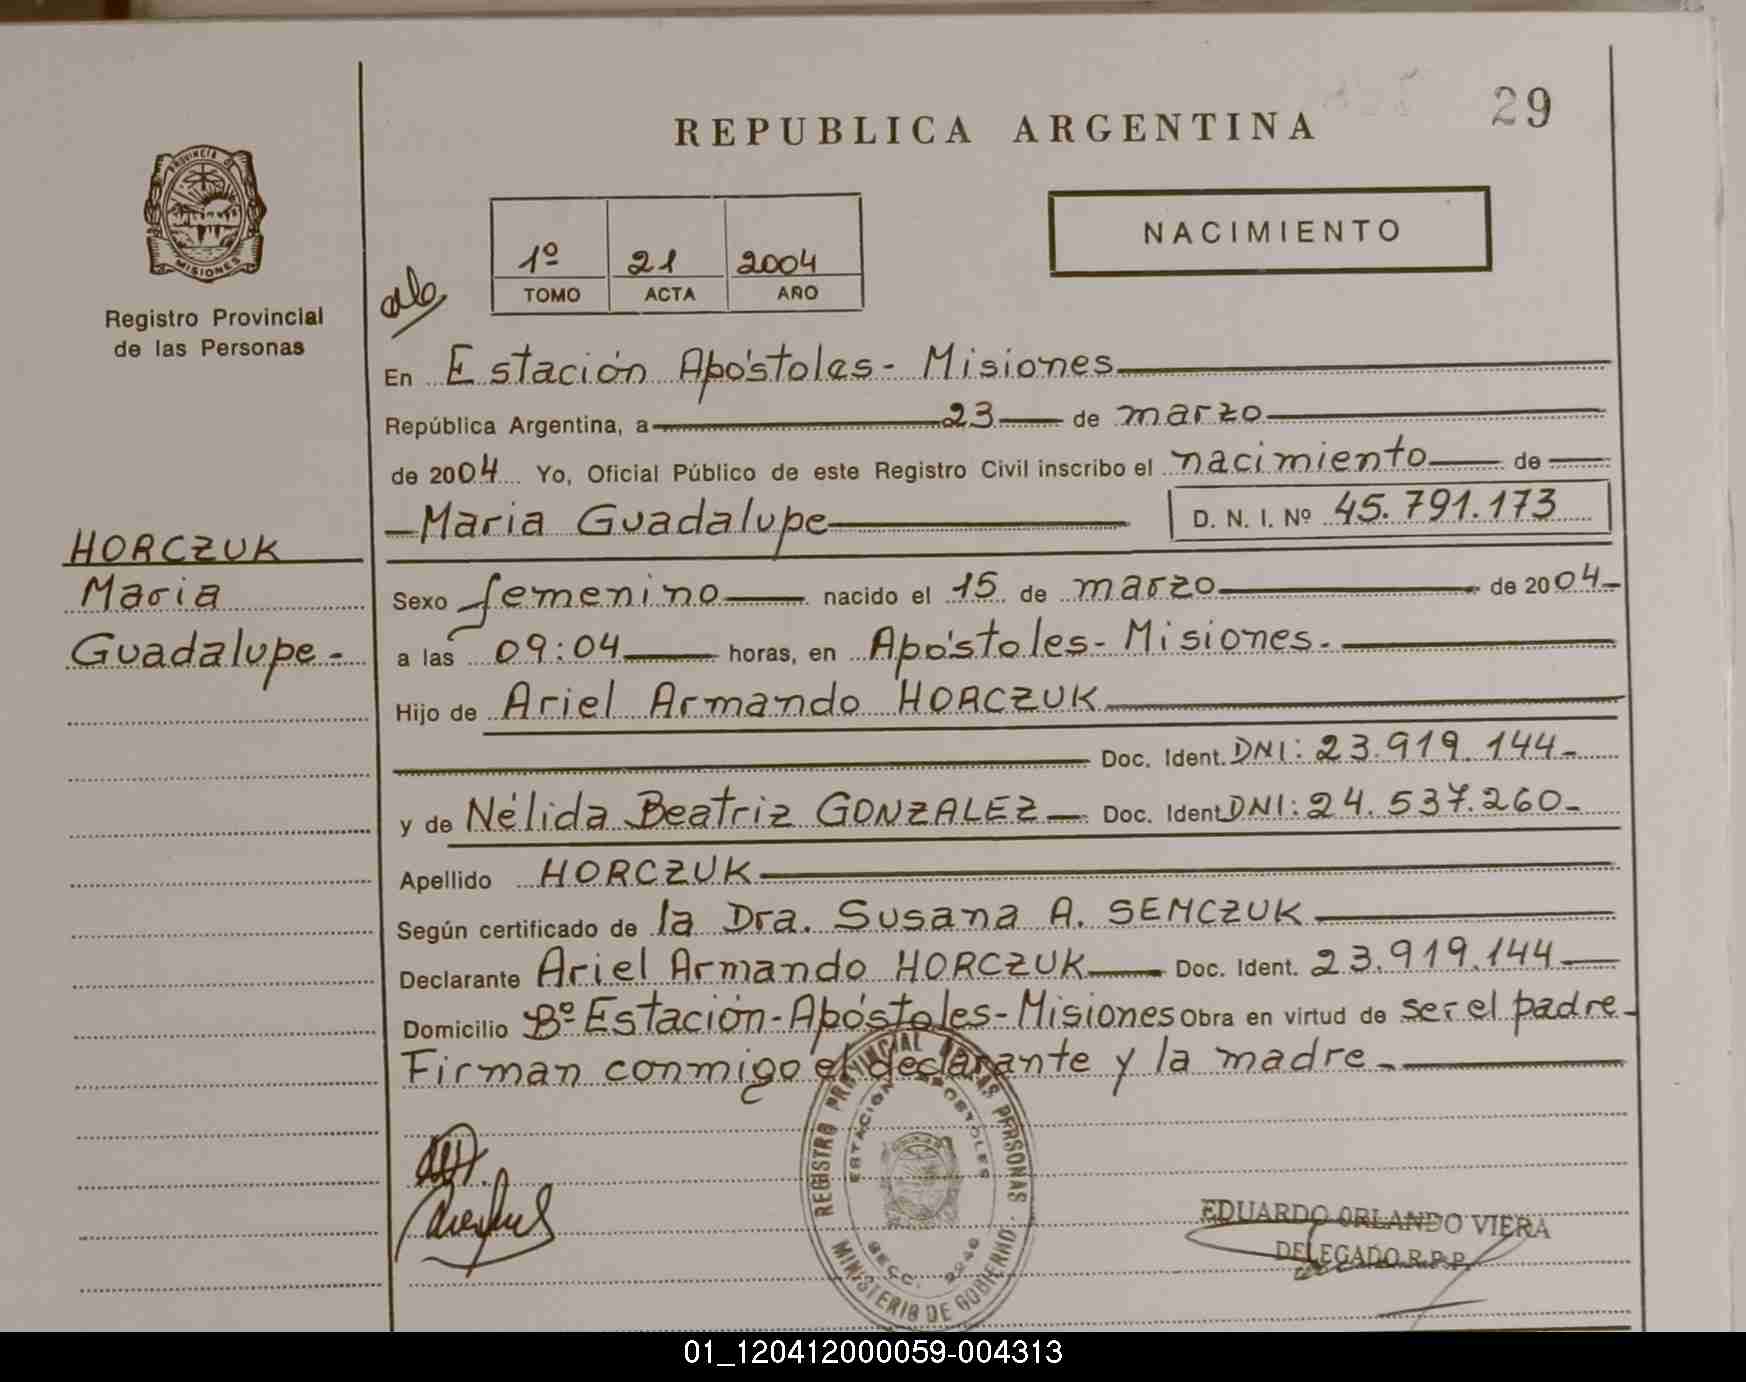 REPUBLICA ARGENTINA
29
PROVINCIA DE
MISIONES
Registro Provincial
de las Personas
1º 21 2004
TOMO ACTA AÑO
NACIMIENTO
En Estación Apóstoles - Misiones
República Argentina, a 23 de marzo
de 2004 Yo, Oficial Público de este Registro Civil inscribo el nacimiento de
Maria Guadalupe D. N. I. Nº 45.791.173
HORCZUK
Maria
Guadalupe -
Sexo femenino nacido el 15 de marzo de 2004-
a las 09:04 horas, en Apóstoles - Misiones.
Hijo de Ariel Armando HORCZUK
Doc. Ident. DNI: 23.919.144-
y de Nélida Beatriz GONZALEZ Doc. Ident DNI: 24.537.260-
Apellido HORCZUK
Según certificado de la Dra. Susana A. SEMCZUK
Declarante Ariel Armando HORCZUK Doc. Ident. 23.919.144
Domicilio Bº Estación - Apóstoles - Misiones Obra en virtud de ser el padre-
Firman conmigo el declarante y la madre -
REGISTRO PROVINCIAL DE LAS PERSONAS
ESTACION APOSTOLES
SECC.
MINISTERIO DE GOBIERNO
EDUARDO ORLANDO VIERA
DELEGADO R.P.P.
01_120412000059-004313